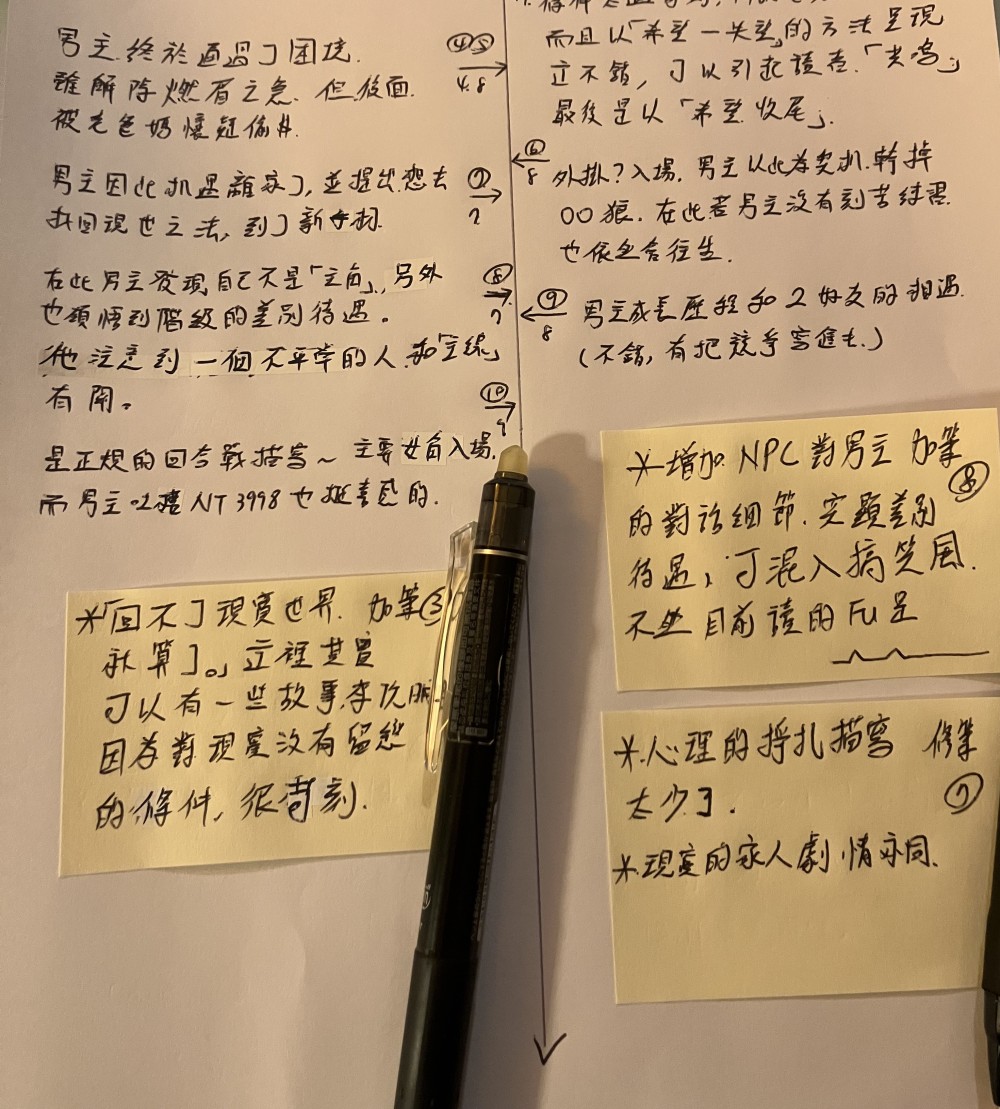 男主終於通過了困境.
雖解除燃眉之急. 但後面.
被老爸媽懷疑偷井.
④⑤
4.8
男主因此机遇離家了, 並提出想去
找回現世之法, 到了新手村.
⑦
7
在此男主發現自己不是「主角」, 另外
也領悟到階級的差別待遇。
他注意到一個不平常的人.和「主線」
有関。
⑧
7.
是正規的回合戰描寫~ 主要女角入場.
而男主吐槽NT 3998 也挺有感的.
⑩
9
而且以「希望一失望」的方法呈現
立不錯, 可以引起讀者.「共鳴」
最後是以「希望收尾」.
⑥
8
外掛?入場. 男主以此為契机.幹掉
〇〇狼. 在此若男主沒有刻苦練習
也依然會往生.
⑨
8
男主成長歷程和2好友的相遇.
(不錯, 有把競爭寫進去.)
*「回不了現實世界. 加筆③
就算了。」這裡其實
可以有一些故事.來伏脈
因為對現實沒有留戀
的條件, 很苛刻.
*增加 NPC 對男主 加筆
⑧
的對話細節. 突顯差別
待遇, 可混入搞笑風.
不然目前讀的Fu是
*心理的掙扎描寫 修筆
太少了. ⑦
*現實的家人劇情亦同.